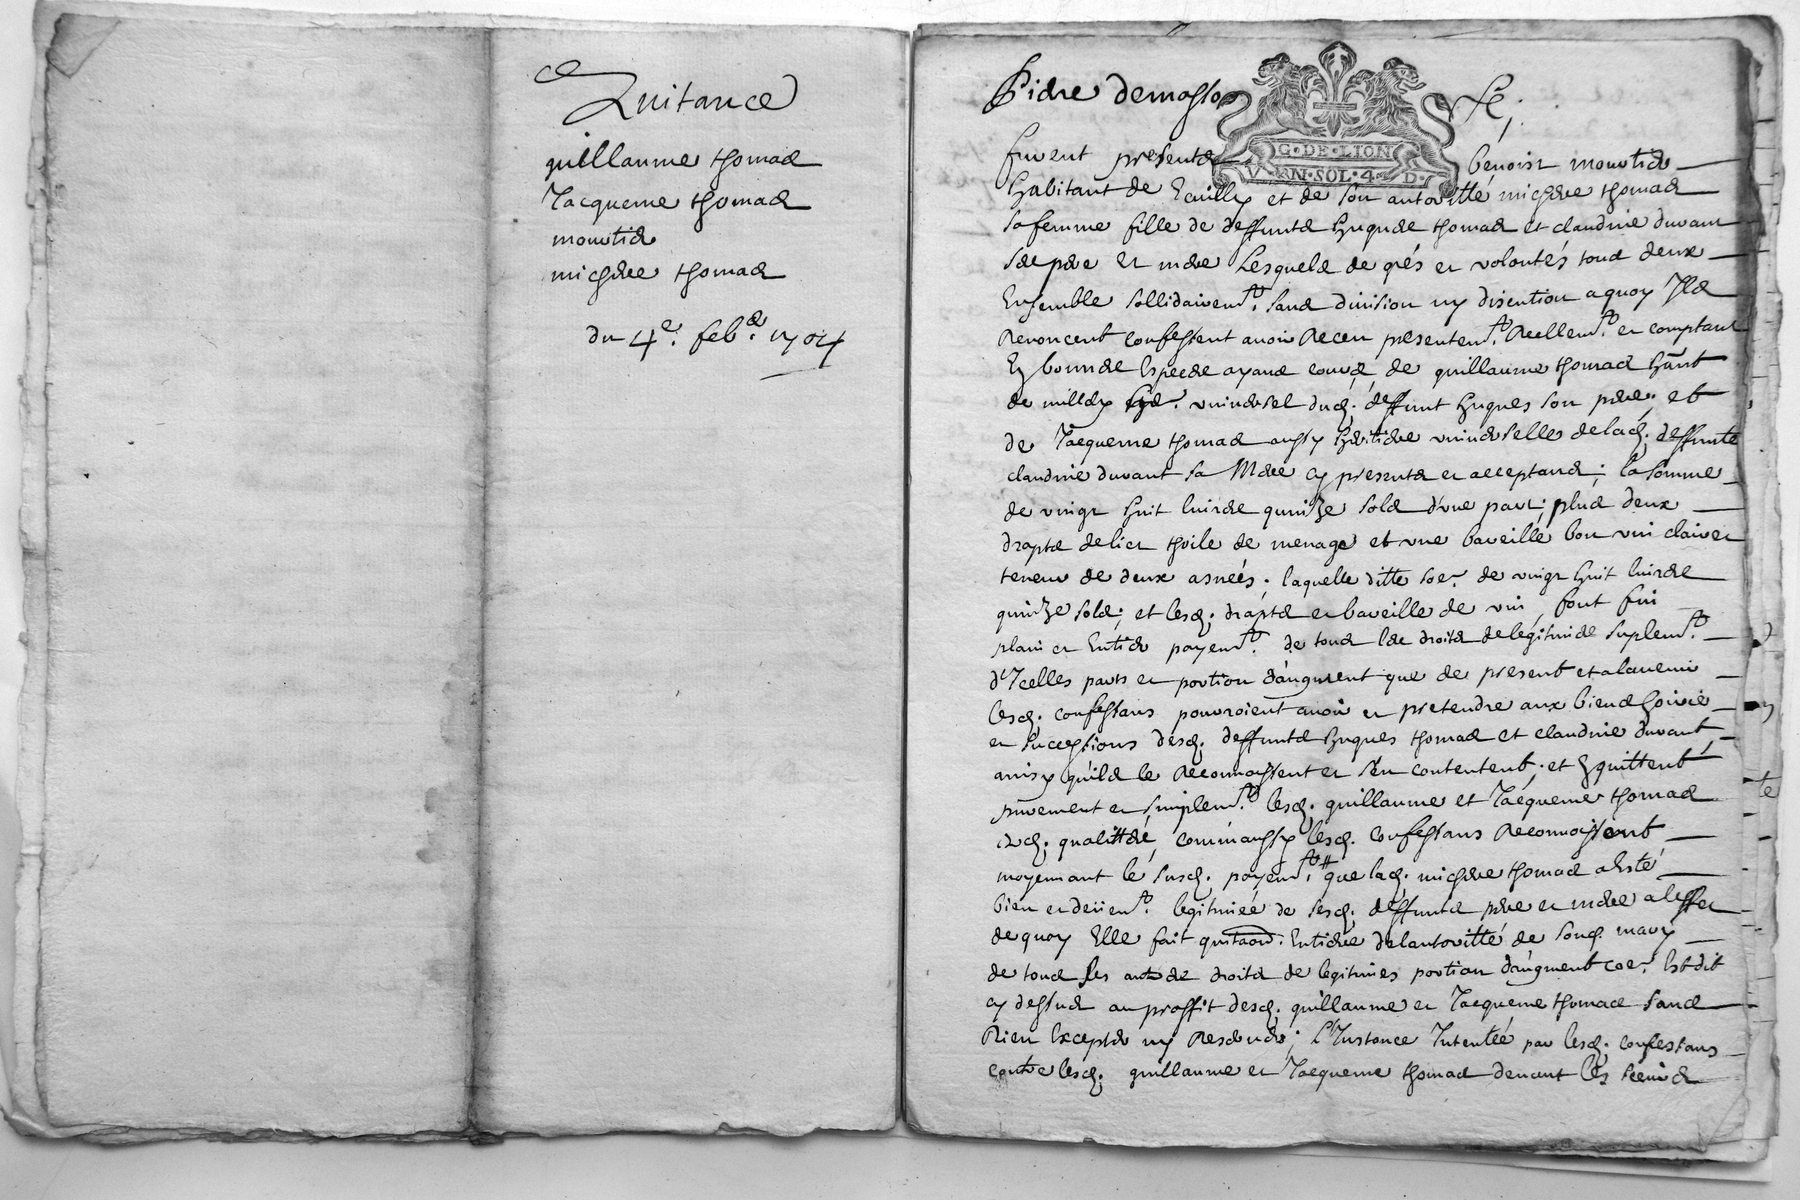 Quitance
guillaume thomas
Jacqueme thomas
moutier
michere thomas
du 4e. febr. 1704
furent presents benoist moutier
habitant de et de son autoritté michere thomas
sa femme fille de deffuntz hugues thomas et claudine durant
ses pere et mere Lesquels de grés et volontés tous deux
Ensemble sollidairemt. sans division ny discution a quoy Ils
Renoncent confessent avoir Receu presentemt. Reellemt. et comptant
En bonnes especes ayans cours, de guillaume thomas hant
de universel dud. deffunt hugues son pere, et
de Jacqueme thomas aussy heritiere universelle de lad. deffunte
claudine durant sa Mere cy presents et acceptans; la somme
de vingt huit livres quinze sols d'une part; plus deux
draptz de lict thoile de menage et une bareille bon vin clairet
teneur de deux asneés; laquelle ditte soe. de vingt huit livres
quinze sols; et lesd. draptz et bareille de vin, sont fin
plain et Entier payemt. de tous les droits de legitimes suplemt.
d'Icelles parts et portion d'augment que de present et a lavenir
lesd. confessans pouroient avoir et pretendre aux biens hoirie
et successions desd. deffuntz hugues thomas et claudine durant,
ainsy qu'ils le Reconnoissent et s'en contentent; et quittent
purement et simplemt. lesd. guillaume et Jacqueme thomas
esd. qualittés, comm'aussy lesd. confessans Reconnoissent
moyennant le susd. payemt. que lad. michere thomas a esté
bien et deüemt. legitimeé de sesd. deffuntz pere et mere a leffet
de quoy Elle fait quitance Entiere de lautoritté de sond. mary
de tous ses autres droits de legitimes portion d'augment coe. Est dit
cy dessus au proffit desd. guillaume et Jacqueme thomas sans
Rien Excepter ny Reserver; L'Instance Intentée par lesd. confessans
contre lesd. guillaume et Jacqueme thomas devant les
G·DE·LION
SOL·4·D·